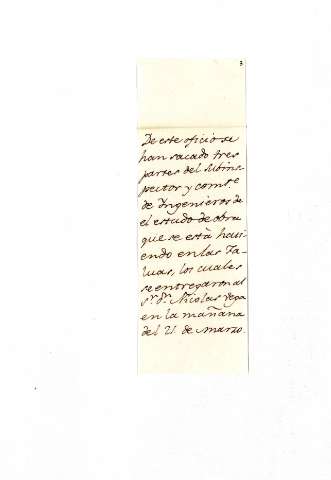 3
De este oficio se
han sacado tres
partes del Subins-
pector y com.te
de Yngenieros de
el estado de obra
que se està haci-
endo en las Ta-
lucas, los cuales
se entregaron al
S.r D.n Nicolas Vega
en la mañana
del 21 de Marzo.